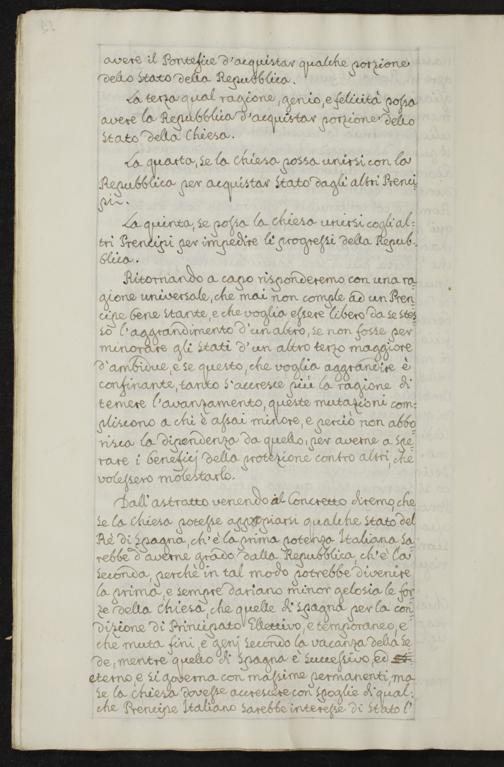 avere il Pontefice d'acquistar qualche porzione
dello Stato della Repubblica.
La terza qual ragione, genio, e felicità possa
avere la Repubblica d'acquistar porzione dello
Stato della Chiesa.
La quarta, se la Chiesa possa unirsi con la
Repubblica per acquistar Stato dagli altri Prenci
pi.
La quinta, se possa la Chiesa unirsi cogli al-
tri Prencipi per impedire li progressi della Repub-
blica.
Ritornando a capo risponderemo con una ra-
gione universale, che mai non comple ad un Pren-
cipe bene stante, e che voglia essere libero da se stes-
so l'aggrandimento d'un altro, se non fosse per
minorare gli Stati d'un altro terzo maggiore
d'ambidue, e se questo, che voglia aggrandire è
confinante, tanto s'accresce più la ragione di
temere l'avanzamento, queste mutazioni com-
pliscono a chi è assai minore, e perciò non abbo-
risca la dipendenza da quello, per averne a spe-
rare i beneficj della protezione contro altri, che
volessero molestarlo.
Dall'astratto venendo al Concretto diremo, che
se la Chiesa potesse appropiarsi qualche Stato del
Rè di Spagna, ch'è la prima potenza Italiana sa-
rebbe d'averne grado dalla Repubblica, ch'è la
seconda, perché in tal modo potrebbe divenire
la prima, e sempre dariano minor gelosia le for
ze della Chiesa, che quelle di Spagna per la con-
dizione di Principato Ellettivo, e temporaneo, e
che muta fini, e genj secondo la vacanza della Se-
de, mentre quello di Spagna è successivo, ed
eterno, e si governa con massime permanenti, ma
se la Chiesa dovesse accrescere con spoglie di qual-
che Prencipe Italiano sarebbe interesse di Stato l'